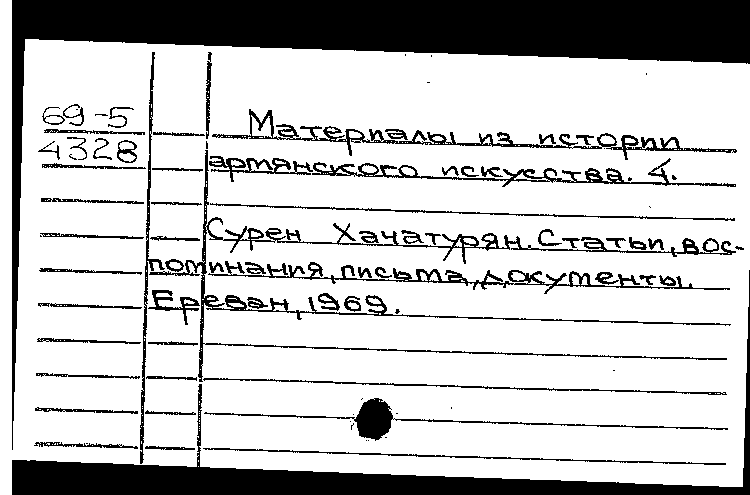 69-5
4328
Материалы из истории
армянского искусства. 4.
Сурен Хачатурян. Статьи, вос-
поминания, письма, документы.
Ереван, 1969.